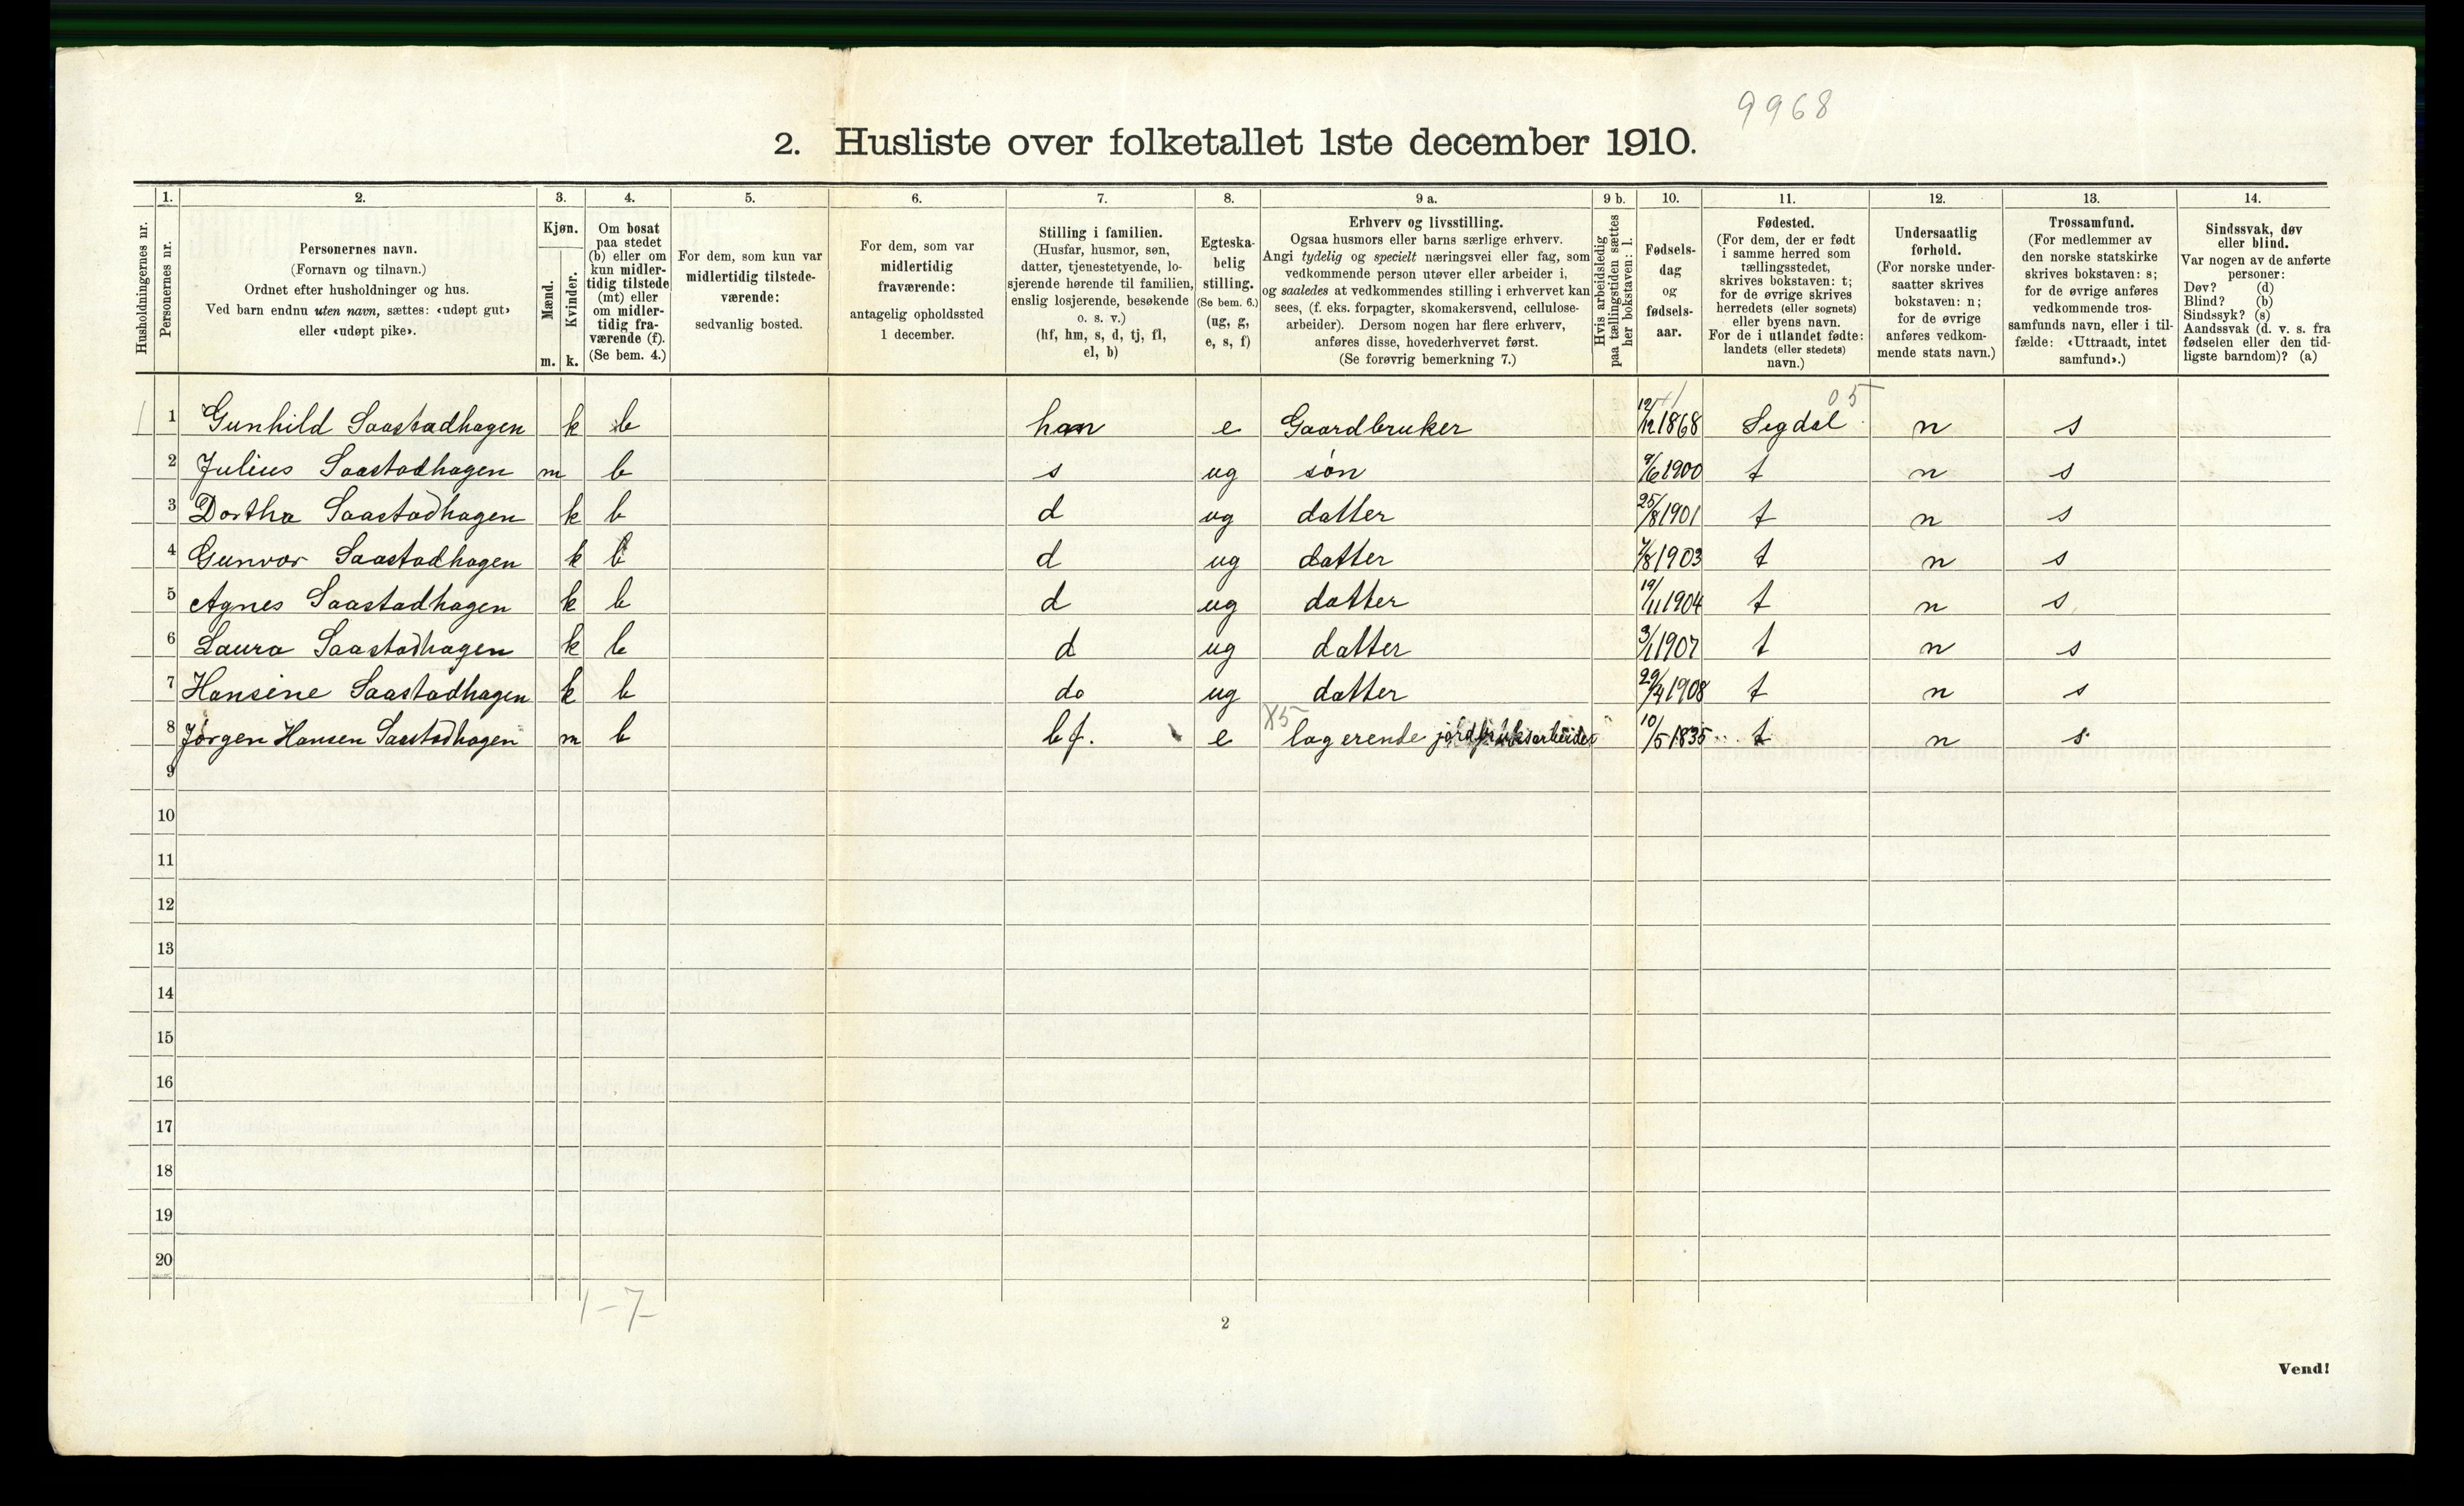 9968
2. Husliste over folketallet 1ste december 1910.
Husholdningernes nr.
1.
Personernes nr.
2.
Personernes navn.
(Fornavn og tilnavn.)
Ordnet efter husholdninger og hus.
Ved barn endnu uten navn, sættes: «udøpt gut»
eller «udøpt pike».
3.
Kjøn.
Mænd.
Kvinder.
m. k.
4.
Om bosat
paa stedet
(b) eller om
kun midler-
tidig tilstede
(mt) eller
om midler-
tidig fra-
værende (f).
(Se bem. 4.)
5.
For dem, som kun var
midlertidig tilstede-
værende:
sedvanlig bosted.
6.
For dem, som var
midlertidig
fraværende:
antagelig opholdssted
1 december.
7.
Stilling i familien.
(Husfar, husmor, søn,
datter, tjenestetyende, lo-
sjerende hørende til familien,
enslig losjerende, besøkende
o. s. v.)
(hf, hm, s, d, tj, fl,
el, b)
8.
Egteska-
belig
stilling.
(Se bem. 6.)
(ug, g,
e, s, f)
9 a.
Erhverv og livsstilling.
Ogsaa husmors eller barns særlige erhverv.
Angi tydelig og specielt næringsvei eller fag, som
vedkommende person utøver eller arbeider i,
og saaledes at vedkommendes stilling i erhvervet kan
sees, (f. eks. forpagter, skomakersvend, cellulose-
arbeider). Dersom nogen har flere erhverv,
anføres disse, hovederhvervet først.
(Se forøvrig bemerkning 7.)
9 b.
Hvis arbeidsledig
paa tællingstiden sættes
her bokstaven: l.
10.
Fødsels-
dag
og
fødsels-
aar.
11.
Fødested.
(For dem, der er født
i samme herred som
tællingsstedet,
skrives bokstaven: t;
for de øvrige skrives
herredets (eller sognets)
eller byens navn.
For de i utlandet fødte:
landets (eller stedets)
navn.)
12.
Undersaatlig
forhold.
(For norske under-
saatter skrives
bokstaven: n;
for de øvrige
anføres vedkom-
mende stats navn.)
13.
Trossamfund.
(For medlemmer av
den norske statskirke
skrives bokstaven: s;
for de øvrige anføres
vedkommende tros-
samfunds navn, eller i til-
fælde: «Uttraadt, intet
samfund».)
14.
Sindssvak, døv
eller blind.
Var nogen av de anførte
personer:
Døv? (d)
Blind? (b)
Sindssyk? (s)
Aandssvak (d. v. s. fra
fødselen eller den tid-
ligste barndom)? (a)
05
1 1 Gunhild Saastadhagen k b e Gaardbruker 12/12 1868 Sigdal n s
2 Julius Saastadhagen m b s ug søn 9/6 1900 t n s
3 Dortha Saastadhagen k b d ug datter 25/8 1901 t n s
4 Gunvor Saastadhagen k b d ug datter 7/8 1903 t n s
5 Agnes Saastadhagen k b d ug datter 19/11 1904 t n s
6 Laura Saastadhagen k b d ug datter 3/1 1907 t n s
7 Hansine Saastadhagen k b do ug datter 29/4 1908 t n s
X5
8 Jørgen Hansen Saastadhagen m b e jordbruksarbeider 10/5 1835 t n s
9
10
11
12
13
14
15
16
17
18
19
20
1-7
2
Vend!